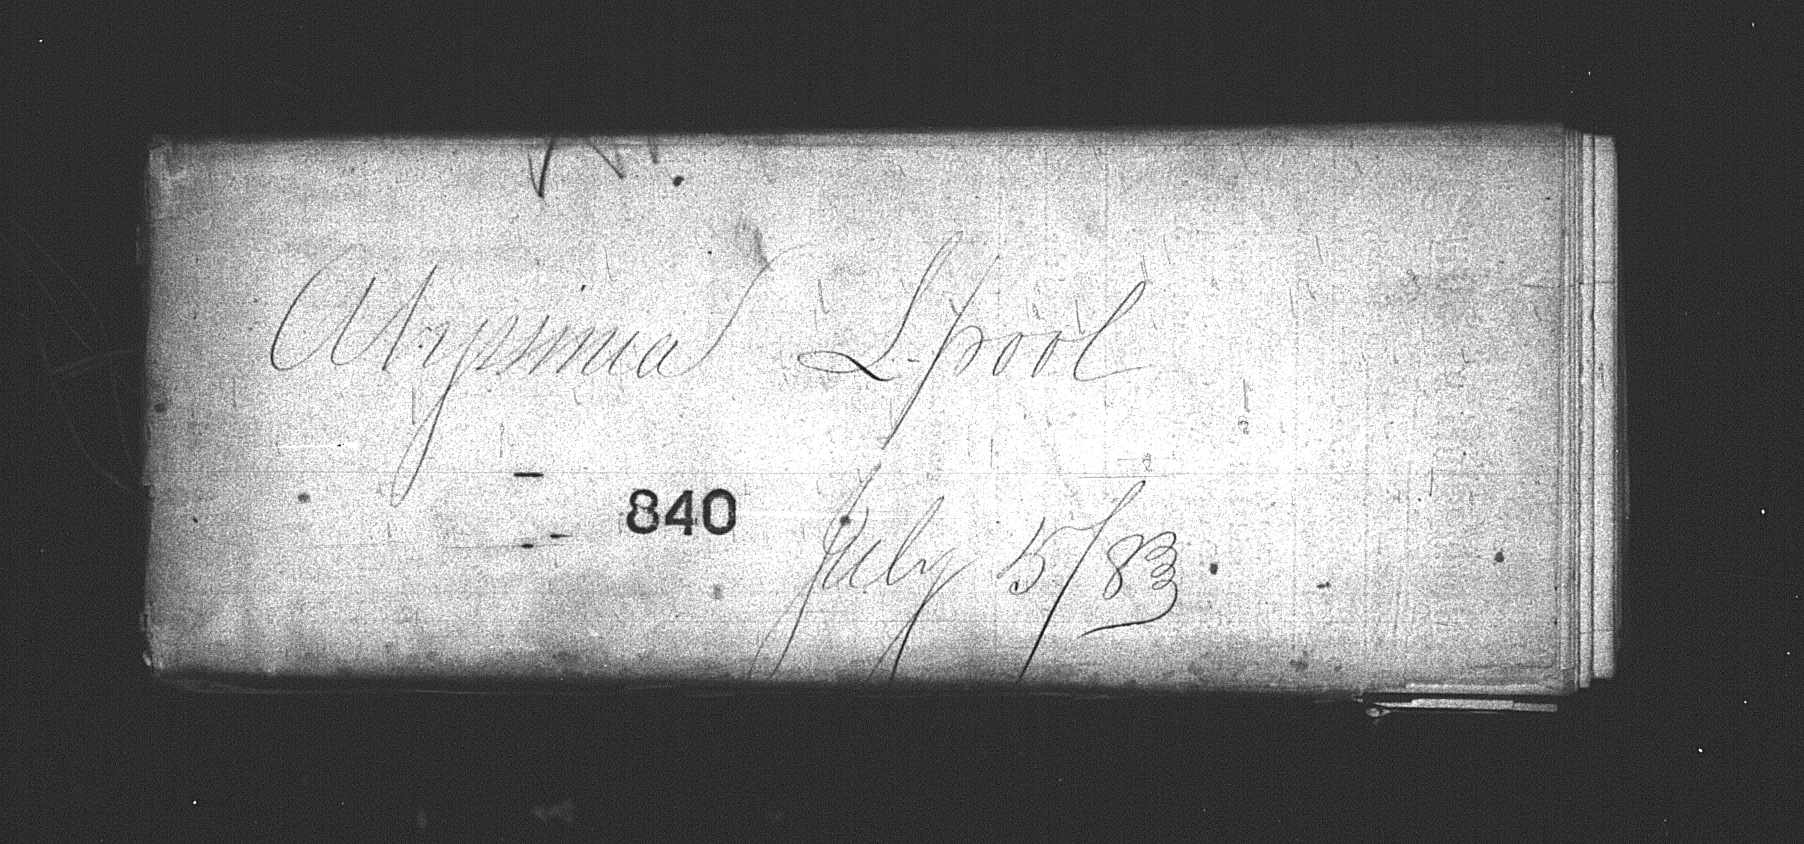 Abyssinia L-pool
840
July 5/83